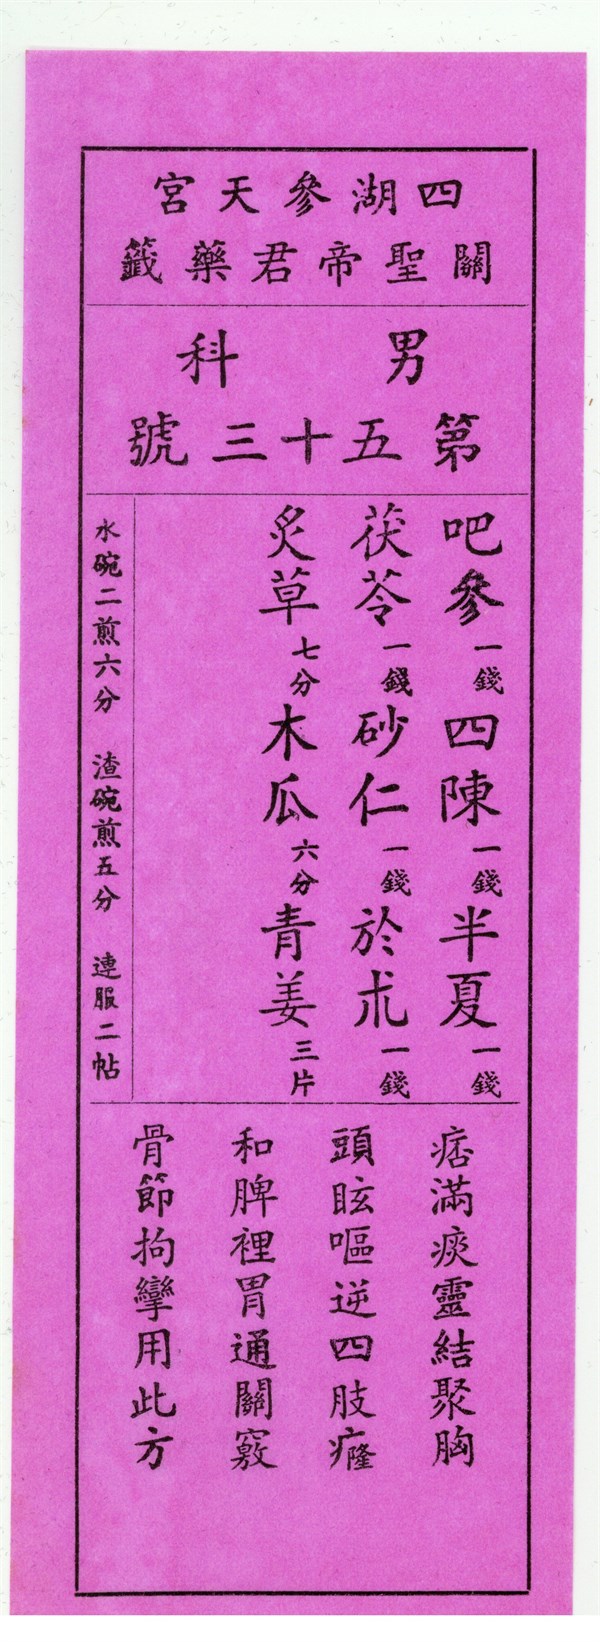 四湖參天宮
關聖帝君藥籤
男科
第五十三號
吧參一錢 四陳一錢 半夏一錢
茯苓一錢 砂仁一錢 於朮一錢
炙草七分 木瓜六分 青姜三片
水碗二煎六分 渣碗煎五分 連服二帖
痞滿痰靈結聚胸
頭眩嘔逆四肢癃
和脾裡胃通關竅
骨節拘攣用此方